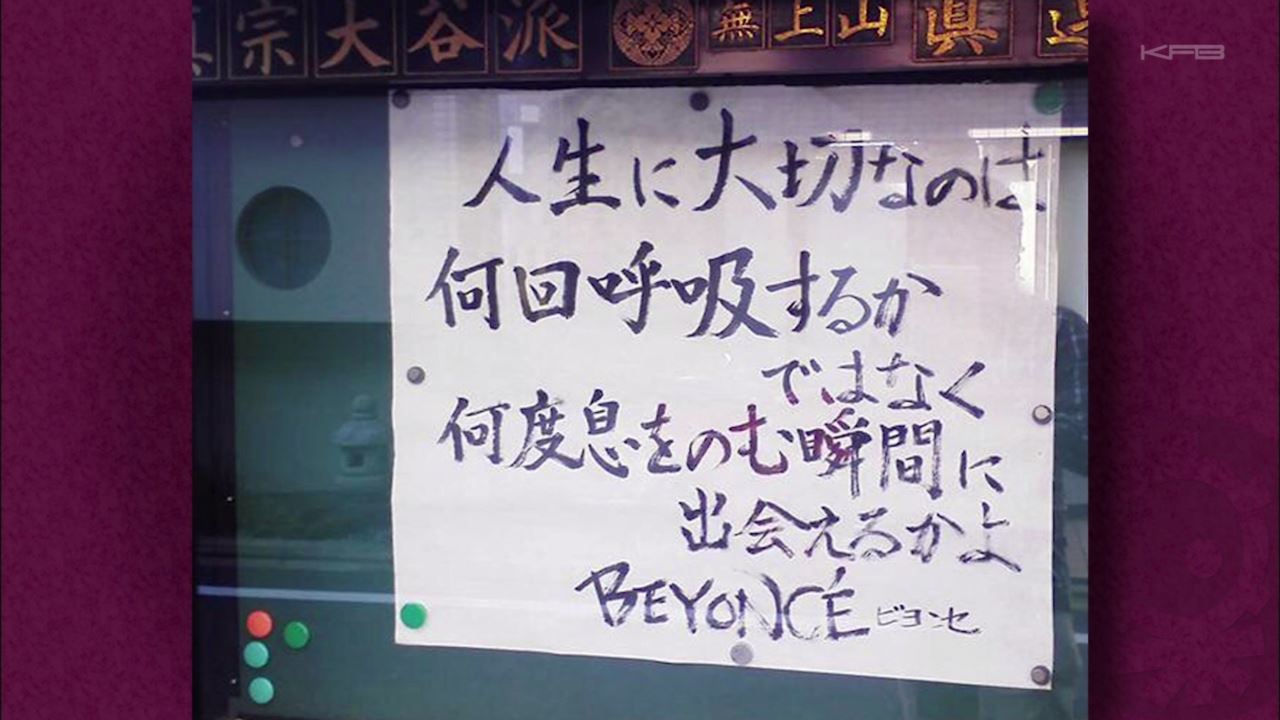 宗大谷派 無上山 眞
KFB
人生に大切なのは
何回呼吸するか
ではなく
何度息をのむ瞬間に
出会えるかよ
BEYONCÉ ビヨンセ